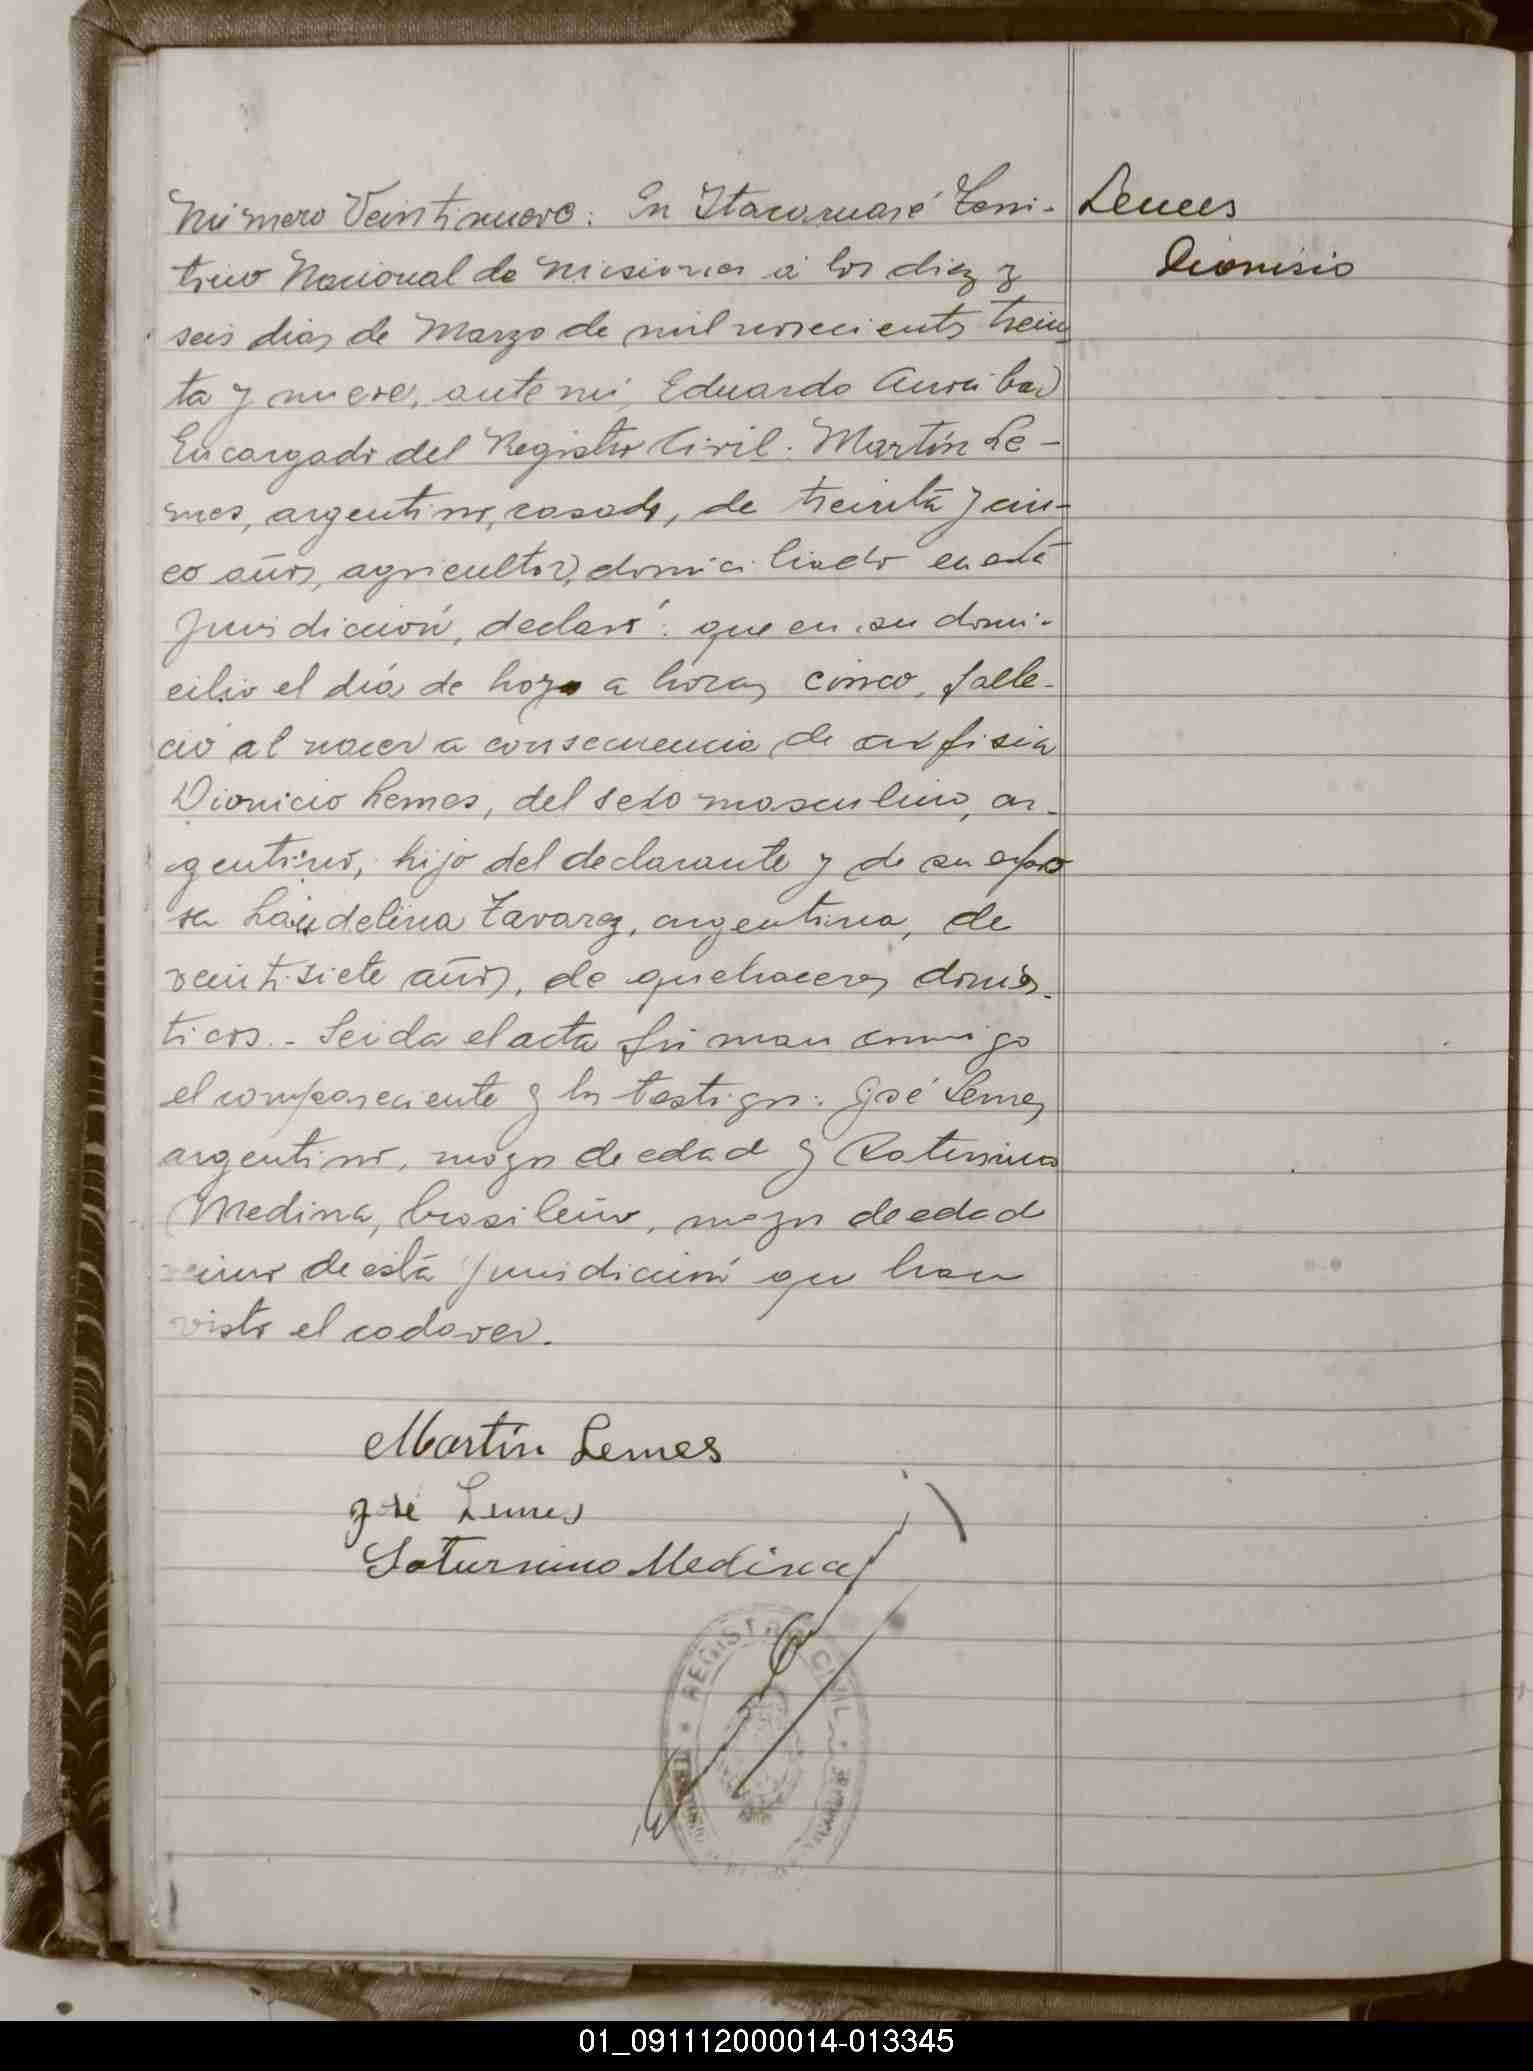 Número Veintinueve: En Itacaruaré Terri-
torio Nacional de Misiones a los diez y
seis dias de Marzo de mil novecientos trein
ta y nueve, ante mi, Eduardo
Encargado del Registro Civil: Martín Le-
mes, argentino, casado, de treinta y cin-
co años, agricultor, domiciliado en está
jurisdicción, declaró: que en su domi-
cilio el día de hoy a horas cinco, falle-
ció al nacer a consecuencia de asfisia
Dionicio Lemes, del sexo masculino, ar-
gentino, hijo del declarante y de su espo
sa Laudelina Tavarez, argentina, de
veintisiete años, de quehaceres domés-
ticos.- Leida el acta firman conmigo
el compareciente y los testigos: José Lemes
argentino, mayor de edad y Saturnino
Medina, brasileño, mayor de edad
vecinos de está jurisdicción que han
visto el cadaver.
Lemes
Dionisio
Martín Lemes
José Lemes
Saturnino Medina
REGISTRO CIVIL
01_091112000014-013345